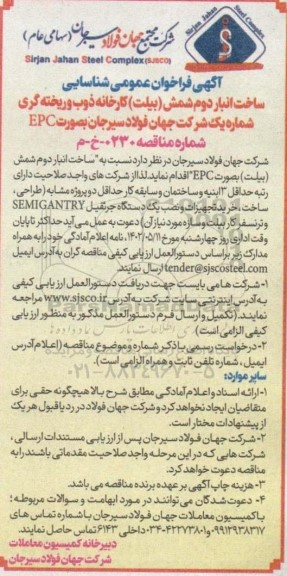 Sirjan Jahan Steel Complex
شرکت مجتمع جهان فولاد سیرجان (سهامی عام)
Sirjan Jahan Steel Complex (SJSCO)
آگهی فراخوان عمومی شناسایی
ساخت انبار دوم شمش (بیلت) کارخانه ذوب و ریخته گری
شماره یک شرکت جهان فولاد سیرجان بصورت EPC
شماره مناقصه ۰۲۳۰-خ-م
شرکت جهان فولاد سیرجان در نظر دارد نسبت به "ساخت انبار دوم شمش
(بیلت) بصورت EPC" اقدام نماید. لذا از شرکت های واجد صلاحیت دارای
رتبه حداقل ۳ ابنیه و ساختمان و سابقه کار حداقل دو پروژه مشابه (طراحی،
ساخت، خرید تجهیزات و نصب یک دستگاه جرثقیل SEMIGANTRY
و ترنسفر کار بیلت و سازه مورد نیاز آن) دعوت به عمل می آید حداکثر تا پایان
وقت اداری روز چهارشنبه مورخ ۱۴۰۲/۰۵/۱۱، نامه اعلام آمادگی خود را به همراه
مدارک زیر براساس دستورالعمل ارزیابی کیفی مناقصه گران به آدرس ایمیل
tender@sjscosteel.com ارسال نمایند.
۱- شرکت ها می بایست جهت دریافت دستورالعمل ارزیابی کیفی
به آدرس اینترنتی سایت شرکت به آدرس www.sjsco.ir مراجعه
نمایند. (تکمیل و ارسال فرم دستورالعمل مذکور به منظور ارزیابی
کیفی الزامی است)
۲- درخواست رسمی با ذکر شماره و موضوع مناقصه (اعلام آدرس
ایمیل، شماره تلفن ثابت و همراه الزامی است).
سایر موارد:
۱- ارائه اسناد و اعلام آمادگی مطابق شرح بالا هیچگونه حقی برای
متقاضیان ایجاد نخواهد کرد و شرکت جهان فولاد در رد یا قبول هر یک
از پیشنهادات مختار است.
۲- شرکت جهان فولاد سیرجان پس از ارزیابی مستندات ارسالی،
شرکت هایی که در این مرحله واجد صلاحیت مقدماتی باشند را به
مناقصه دعوت خواهد کرد.
۳- هزینه چاپ آگهی بر عهده برنده مناقصه می باشد.
۴- دعوت شدگان می توانند در مورد ابهامات و سوالات مربوطه؛
با کمیسیون معاملات جهان فولاد سیرجان با شماره تماس های
۰۹۹۱۲۹۳۸۳۱۷ و ۰۳۴-۴۲۲۷۳۸۰۱ داخلی ۶۱۴۳ تماس حاصل نمایند.
دبیرخانه کمیسیون معاملات
شرکت جهان فولاد سیرجان